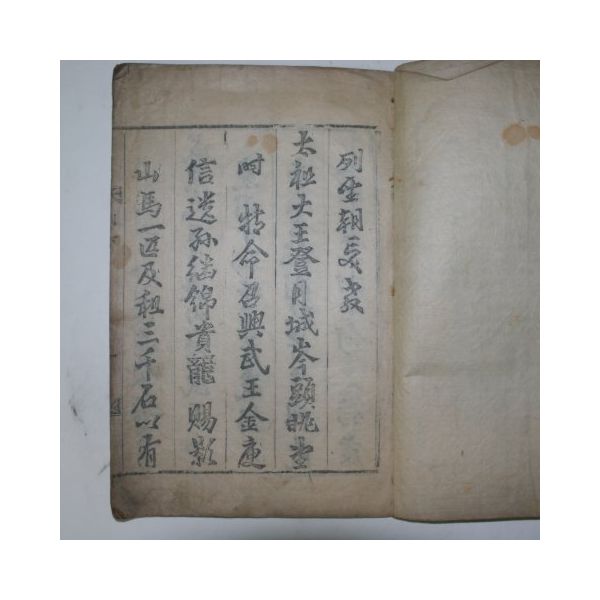 列聖朝受教
太祖大王登月城岑頭眺望
時 特命召興武王金庾
信遠孫繼錦貴龍 賜影
山馬一匹及租三千石以有